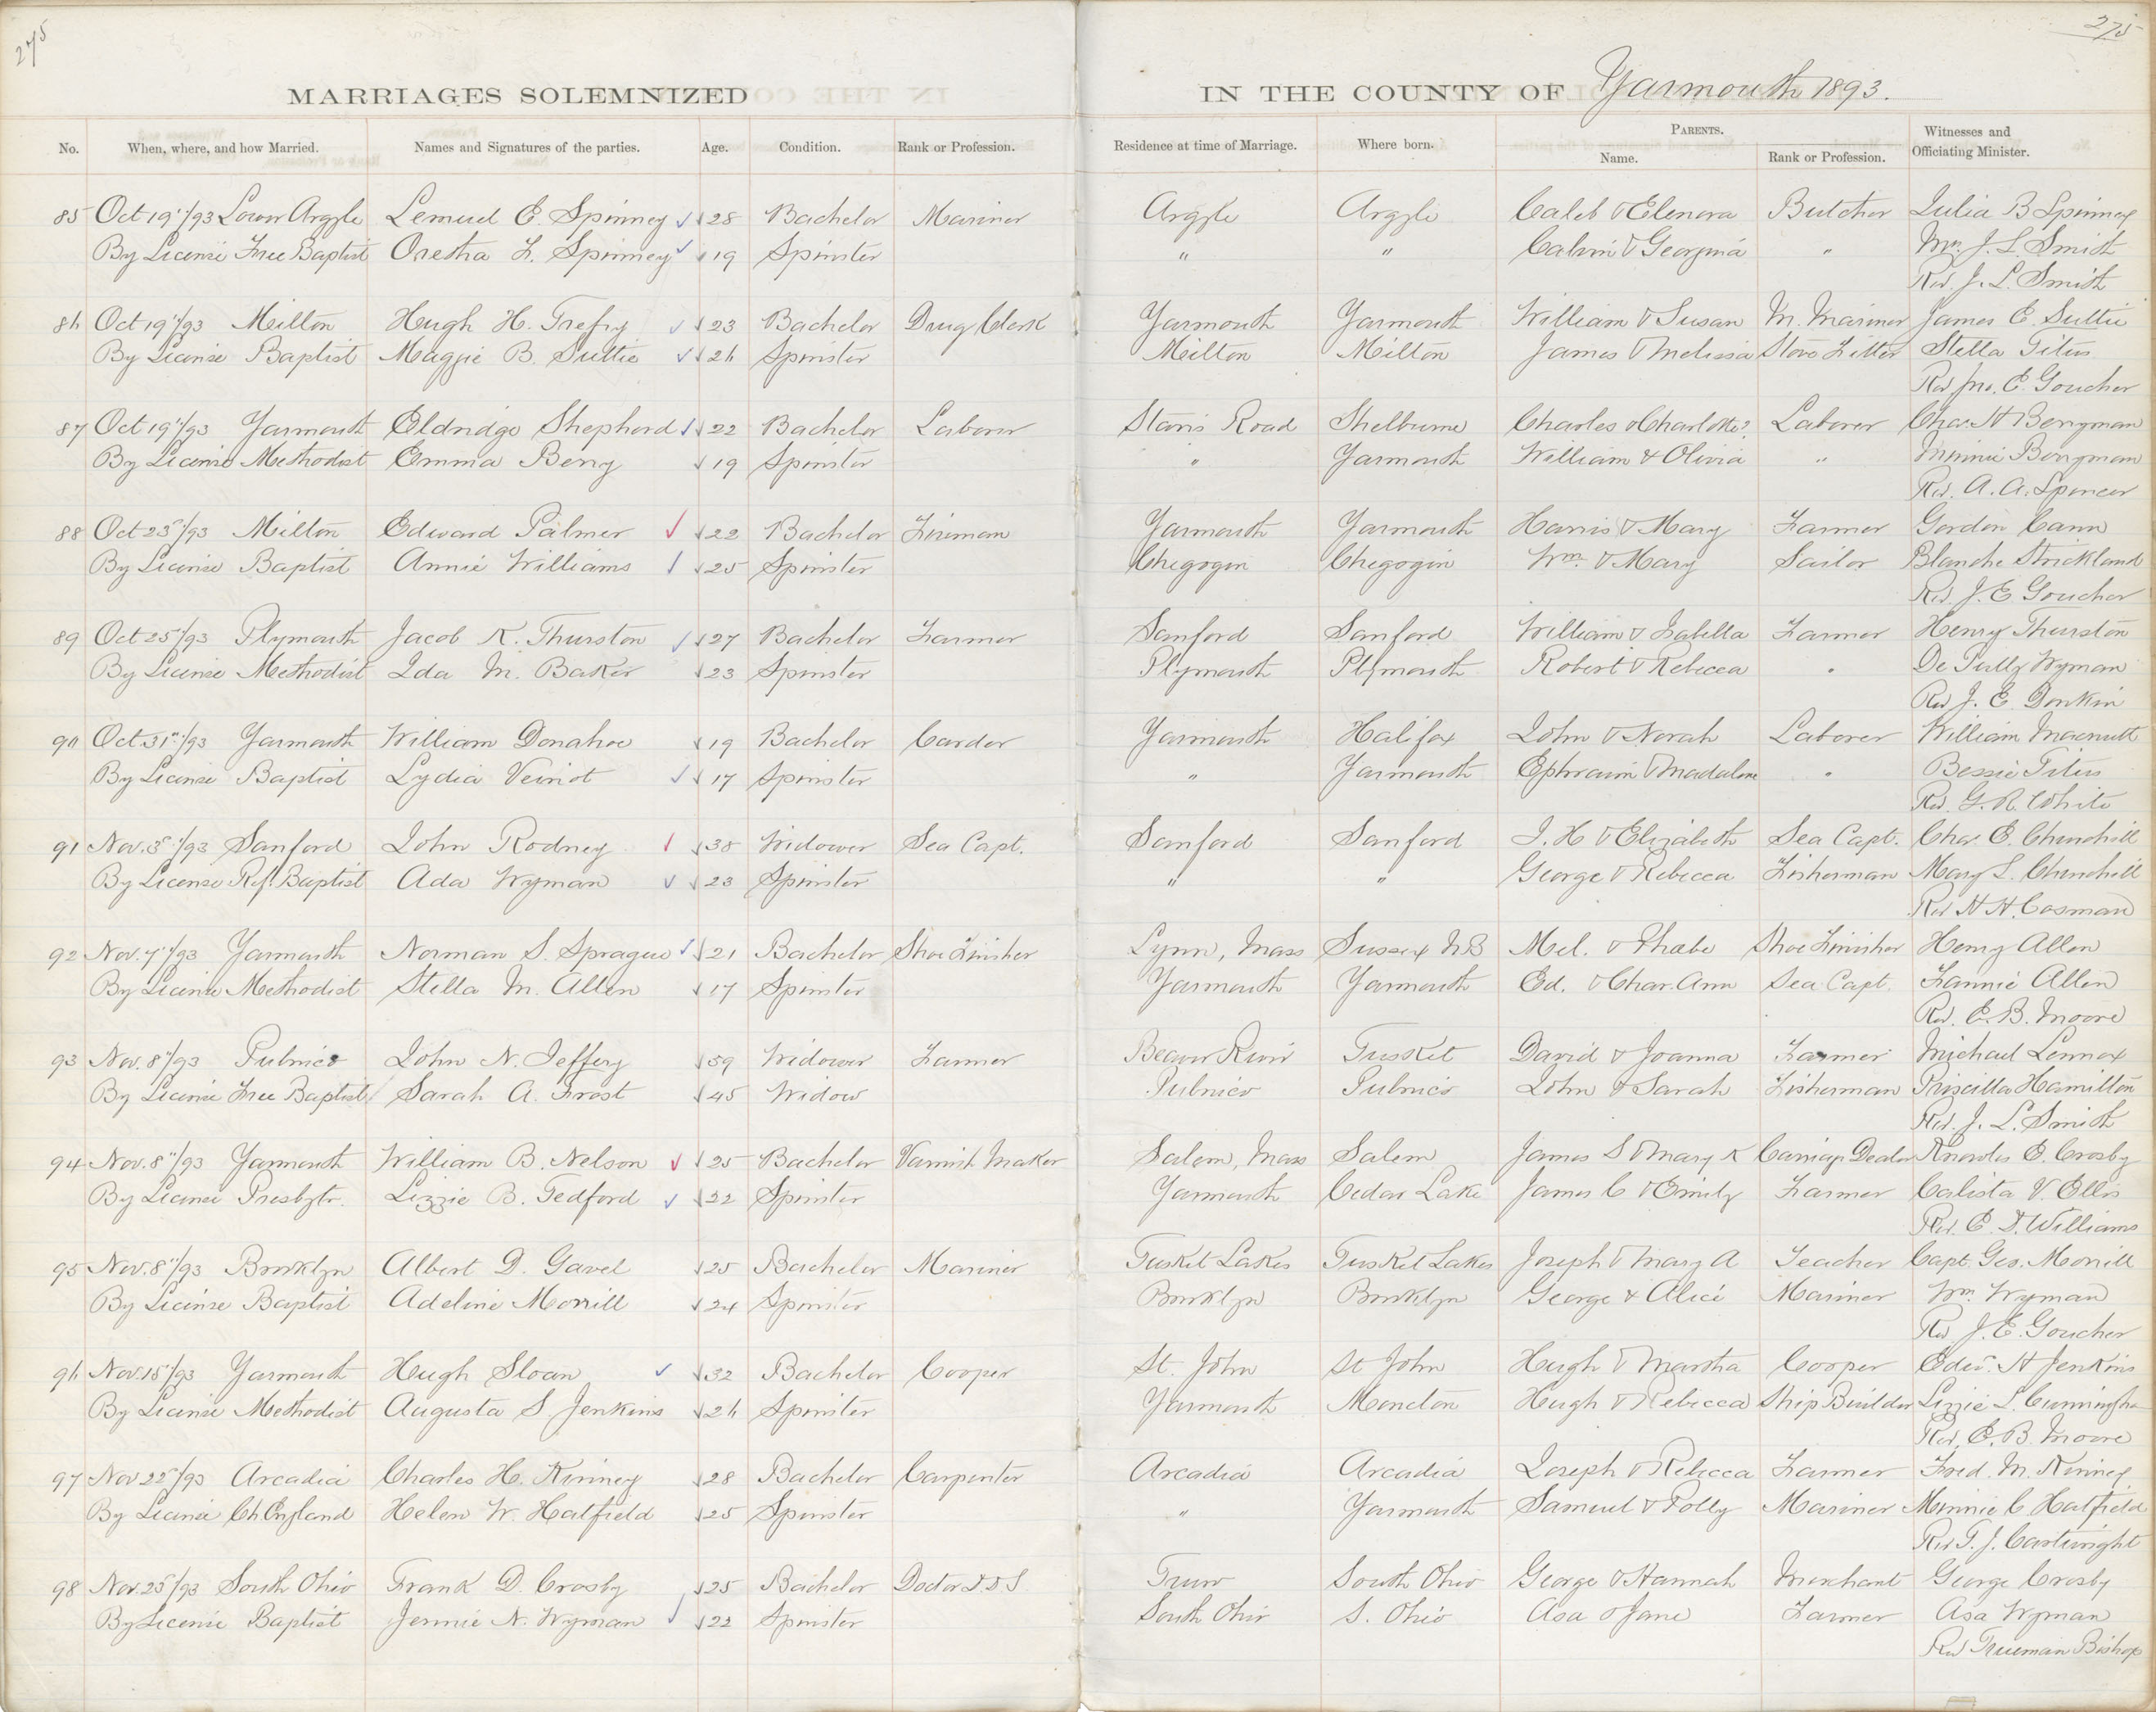 275
275
MARRIAGES SOLEMNIZED IN THE COUNTY OF Yarmouth 1893.
No. When, where, and how Married. Names and Signatures of the parties. Age. Condition. Rank or Profession. Residence at time of Marriage. Where born. PARENTS. Name. Rank or Profession. Witnesses and Officiating Minister.
85 Oct 19"/93 Lower Argyle Lemuel E. Spinney 28 Bachelor Mariner Argyle Argyle Caleb & Elenora Butcher Julia B Spinney
By License Free Baptist Oretha F. Spinney 19 Spinster " " Calvin & Georgina " Mrs. J. L. Smith
Rev. J. L. Smith
86 Oct 19"/93 Milton Hugh H. Trefry 23 Bachelor Drug Clerk Yarmouth Yarmouth William & Susan M. Mariner James E. Suttie
By License Baptist Maggie B. Suttie 26 Spinster Milton Milton James & Melissa Stove Fitter Stella Titus
Rev Jno. E. Goucher
87 Oct 19"/93 Yarmouth Eldridge Shepherd 22 Bachelor Laborer Starrs Road Shelburne Charles & Charlotte? Laborer Chas. H Berryman
By License Methodist Emma Berry 19 Spinster " Yarmouth William & Olivia " Minnie Berryman
Rev. A. A. Spencer
88 Oct 23"/93 Milton Edward Palmer 22 Bachelor Fireman Yarmouth Yarmouth Harris & Mary Farmer Gordon Cann
By License Baptist Annie Williams 25 Spinster Chegogin Chegogin Wm. & Mary Sailor Blanche Strickland
Rev. J. E Goucher
89 Oct 25"/93 Plymouth Jacob K. Thurston 27 Bachelor Farmer Sanford Sanford William & Isabella Farmer Henry Thurston
By License Methodist Ida M. Baker 23 Spinster Plymouth Plymouth Robert & Rebecca " Wyman
Rev J. E. Donkin
90 Oct 31"/93 Yarmouth William Donahoe 19 Bachelor Carder Yarmouth Halifax John & Norah Laborer William Macnutt
By License Baptist Lydia Veinot 17 Spinster " Yarmouth Ephraim & Madaline " Bessie Titus
Rev. G. R. White
91 Nov. 3"/93 Sanford John Rodney 38 Widower Sea Capt. Sanford Sanford J. H & Elizabeth Sea Capt. Chas. E. Churchill
By License Ref. Baptist Ada Wyman 23 Spinster " " George & Rebecca Fisherman Mary L. Churchill
Rev H H. Cosman
92 Nov. 7"/93 Yarmouth Norman S. Sprague 21 Bachelor Shoe Finisher Lynn, Mass Sussex N.B Mel. & Phebe Shoe Finisher Henry Allen
By License Methodist Stella M. Allen 17 Spinster Yarmouth Yarmouth Ed. & Char. Ann Sea Capt. Fannie Allen
Rev. E. B. Moore
93 Nov. 8"/93 Pubnico John N. Jeffery 59 Widower Farmer Beaver River Tusket David & Joanna Farmer Michael Lennox
By License Free Baptist Sarah A. Frost 45 Widow Pubnico Pubnico John & Sarah Fisherman Priscilla Hamilton
Rev. J. L. Smith
94 Nov. 8"/93 Yarmouth William B. Nelson 25 Bachelor Varnish Maker Salem, Mass Salem James S & Mary K Carriage Dealer Knowles E. Crosby
By License Presbytr. Lizzie B. Tedford 22 Spinster Yarmouth Cedar Lake James C & Emily Farmer Calista V. Ellis
Rev. E. D. Williams
95 Nov. 8"/93 Brooklyn Albert D. Gavel 25 Bachelor Mariner Tusket Lakes Tusket Lakes Joseph & Mary A Teacher Capt. Geo. Morrill
By License Baptist Adeline Morrill 24 Spinster Brooklyn Brooklyn George & Alice Mariner Wm. Wyman
Rev J. E. Goucher
96 Nov. 15"/93 Yarmouth Hugh Sloan 32 Bachelor Cooper St. John St John Hugh & Martha Cooper Edw. H Jenkins
By License Methodist Augusta S. Jenkins 26 Spinster Yarmouth Moncton Hugh & Rebecca Ship Builder Lizzie L. Cunningham
Rev. E. B. Moore
97 Nov 22"/93 Arcadia Charles H. Kinney 28 Bachelor Carpenter Arcadia Arcadia Joseph & Rebecca Farmer Fred. M. Kinney
By License Ch England Helen W. Hatfield 25 Spinster " Yarmouth Samuel & Polly Mariner Minnie C Hatfield
Rev T. J. Cartwright
98 Nov. 25"/93 South Ohio Frank D. Crosby 25 Bachelor Doctor D.D.S. Truro South Ohio George & Hannah Merchant George Crosby
By License Baptist Jennie N. Wyman 22 Spinster South Ohio S. Ohio Asa & Jane Farmer Asa Wyman
Rev Trueman Bishop